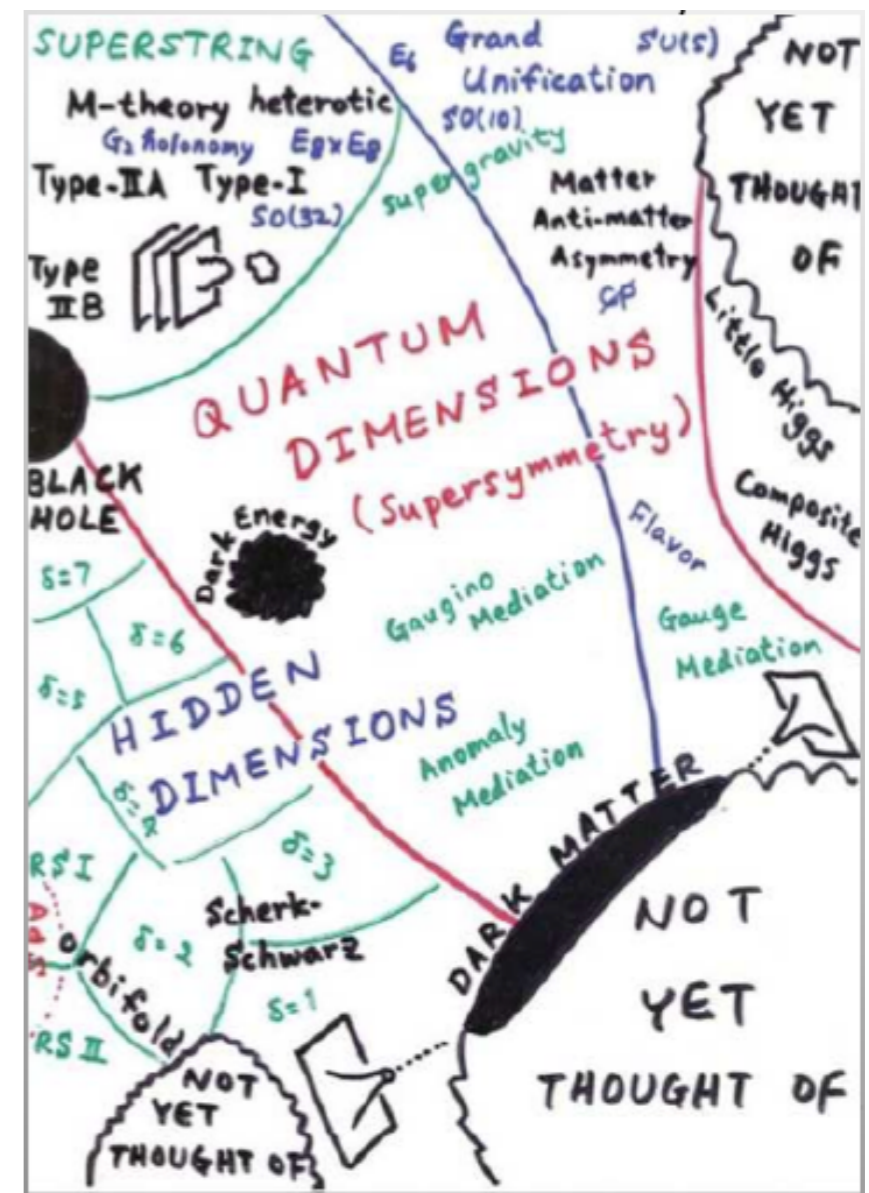 SUPERSTRING
M-theory heterotic
G₂ holonomy E8xE8
Type-IIA Type-I
SO(32)
Type
IIB
E6 Grand SU(5)
Unification
SO(10)
supergravity
Matter
Anti-matter
Asymmetry
CP
NOT
YET
THOUGHT
OF
Little Higgs
Composite
Higgs
QUANTUM
DIMENSIONS
(Supersymmetry)
BLACK
HOLE
Dark Energy
Flavor
Gaugino
Mediation
Gauge
Mediation
Anomaly
Mediation
δ=7
δ=6
δ=5
HIDDEN
DIMENSIONS
DARK MATTER
δ=3
RS I
Scherk-
Schwarz
δ=2
orbifold
δ=1
RS II
NOT
YET
THOUGHT OF
NOT
YET
THOUGHT OF